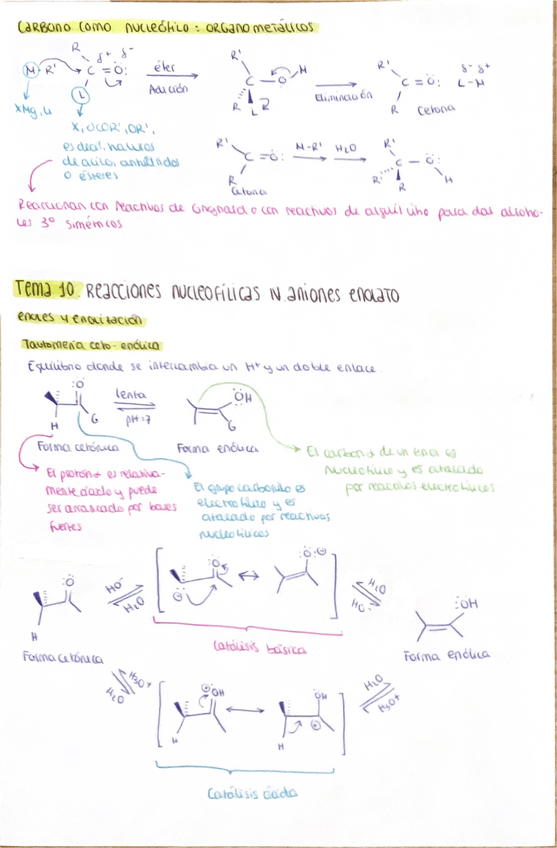 Carbono como nucleófilo: organometálicos
R
δ+ δ-
M-R'
C=O:
L
éter
Adición
R'
C O H
R L R
Eliminación
R'
C=O:
R
Cetona
δ- δ+
L-M
XMg, Li
X, OCOR', OR',
es decir, haluros
de acilo, anhídridos
o ésteres
R'
C=O:
R
Cetona
M-R'
H2O
R'
R'' C O:
R H
Reaccionan con reactivos de Grignard o con reactivos de alquil litio para dar alcoho-
les 3º simétricos
Tema 10. Reacciones nucleofílicas iv aniones enolato
enoles y enolización
Tautomería ceto-enólica
Equilibrio donde se intercambia un H+ y un doble enlace.
:O
G
H
lenta
pH=7
:OH
G
Forma cetónica
Forma enólica
El carbono α de un enol es
nucleófilo y es atacado
por reactivos electrofílicos
El protón α es relativa-
mente ácido y puede
ser arrancado por bases
fuertes
El grupo carbonilo es
electrófilo y es
atacado por reactivos
nucleofílicos
:O
H
Forma cetónica
HO-
H2O
:O
:O:
H2O
HO-
Catálisis básica
:OH
Forma enólica
H3O+
H2O
OH
H
:OH
H
H2O
H3O+
Catálisis ácida